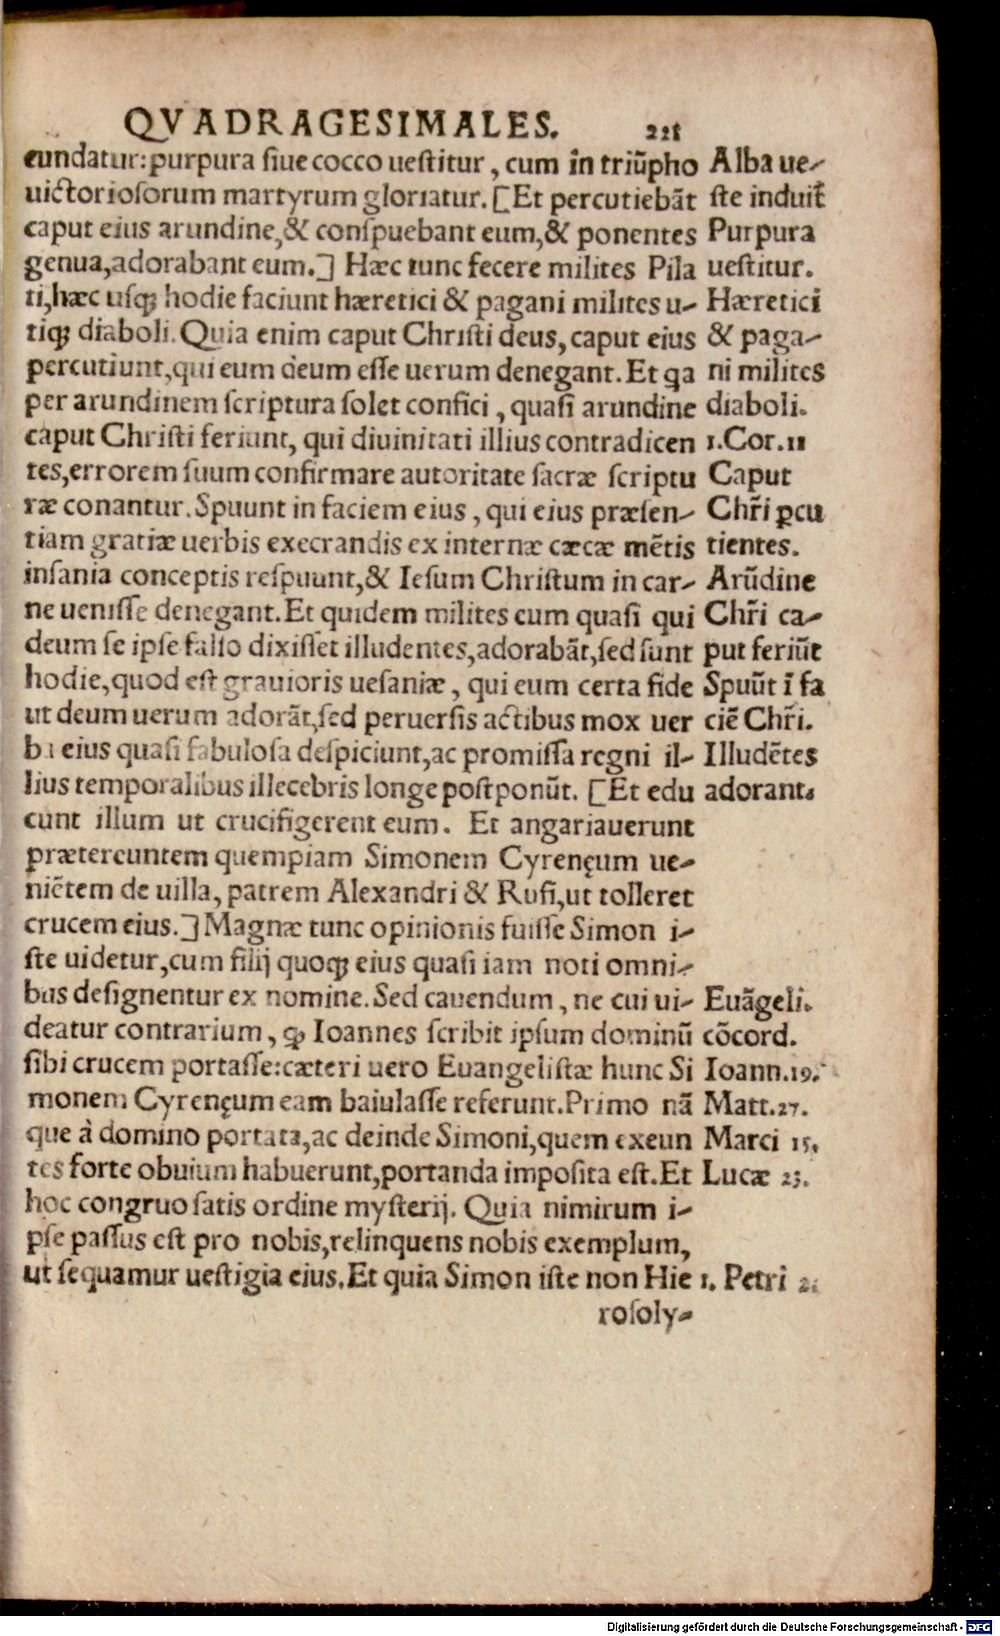 QVADRAGESIMALES. 221
cundatur: purpura siue cocco uestitur, cum in triũpho
uictoriosorum martyrum gloriatur. [Et percutiebãt
caput eius arundine, & conspuebant eum, & ponentes
genua, adorabant eum.] Hæc tunc fecere milites Pila
ti, hæc usq; hodie faciunt hæretici & pagani milites u-
tiq; diaboli. Quia enim caput Christi deus, caput eius
percutiunt, qui eum deum esse uerum denegant. Et ꝗa
per arundinem scriptura solet confici, quasi arundine
caput Christi feriunt, qui diuinitati illius contradicen
tes, errorem suum confirmare autoritate sacræ scriptu
ræ conantur. Spuunt in faciem eius, qui eius præsen-
tiam gratiæ uerbis execrandis ex internæ cæcæ mẽtis
insania conceptis respuunt, & Iesum Christum in car-
ne uenisse denegant. Et quidem milites eum quasi qui
deum se ipse falso dixisset illudentes, adorabãt, sed sunt
hodie, quod est grauioris uesaniæ, qui eum certa fide
ut deum uerum adorãt, sed peruersis actibus mox uer
ba eius quasi fabulosa despiciunt, ac promissa regni il-
lius temporalibus illecebris longe postponũt. [Et edu
cunt illum ut crucifigerent eum. Et angariauerunt
prætereuntem quempiam Simonem Cyrenęum ue-
niẽtem de uilla, patrem Alexandri & Rufi, ut tolleret
crucem eius.] Magnæ tunc opinionis fuisse Simon i-
ste uidetur, cum filij quoq; eius quasi iam noti omni-
bus designentur ex nomine. Sed cauendum, ne cui ui-
deatur contrarium, ꝙ Ioannes scribit ipsum dominũ
sibi crucem portasse: cæteri uero Euangelistæ hunc Si
monem Cyrenęum eam baiulasse referunt. Primo nã
que à domino portata, ac deinde Simoni, quem exeun
tes forte obuium habuerunt, portanda imposita est. Et
hoc congruo satis ordine mysterij. Quia nimirum i-
pse passus est pro nobis, relinquens nobis exemplum,
ut sequamur uestigia eius. Et quia Simon iste non Hie
rosoly-
Alba ue-
ste induit̃
Purpura
uestitur.
Hæretici
& paga-
ni milites
diaboli.
1. Cor. 11
Caput
Chr̃i ꝑcu
tientes.
Arũdine
Chr̃i ca-
put feriũt
Spuũt ĩ fa
ciẽ Chr̃i.
Illudẽtes
adorant.
Euãgeli.
cõcord.
Ioann. 19.
Matt. 27.
Marci 15.
Lucæ 23.
1. Petri 2.
Digitalisierung gefördert durch die Deutsche Forschungsgemeinschaft - DFG